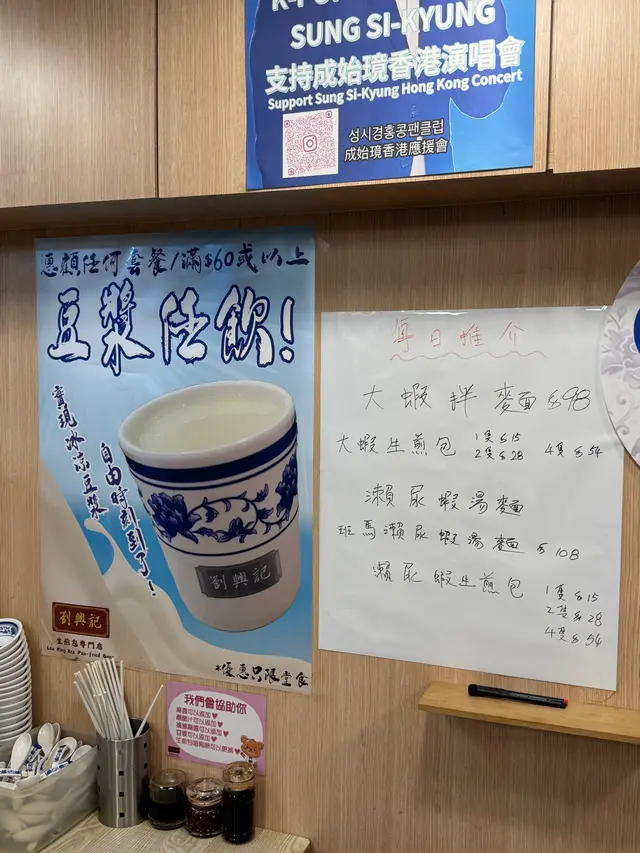 SUNG SI-KYUNG
支持成始璄香港演唱會
Support Sung Si-Kyung Hong Kong Concert
성시경홍콩팬클럽
成始璄香港應援會
惠顧任何套餐/滿$60或以上
豆漿任飲!
實現冰凉豆漿
自由時刻到了!
劉興記
劉興記
生煎包專門店
*優惠只限堂食
每日推介
大蝦拌麵 $98
大蝦生煎包 1隻$15 4隻$54
2隻$28
瀨尿蝦湯麵
斑馬瀨尿蝦湯麵 $108
瀨尿蝦生煎包 1隻$15
2隻$28
4隻$54
我們會協助你